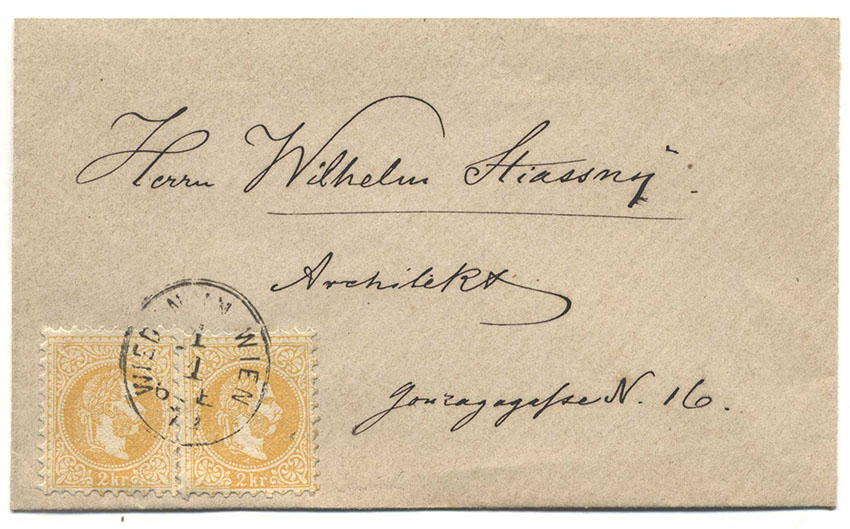 Herrn Wilhelm Stiassnÿ
Architekt
Gonzagagasse N. 16.
WIEDEN IN WIEN
1
1
2 kr
2 kr